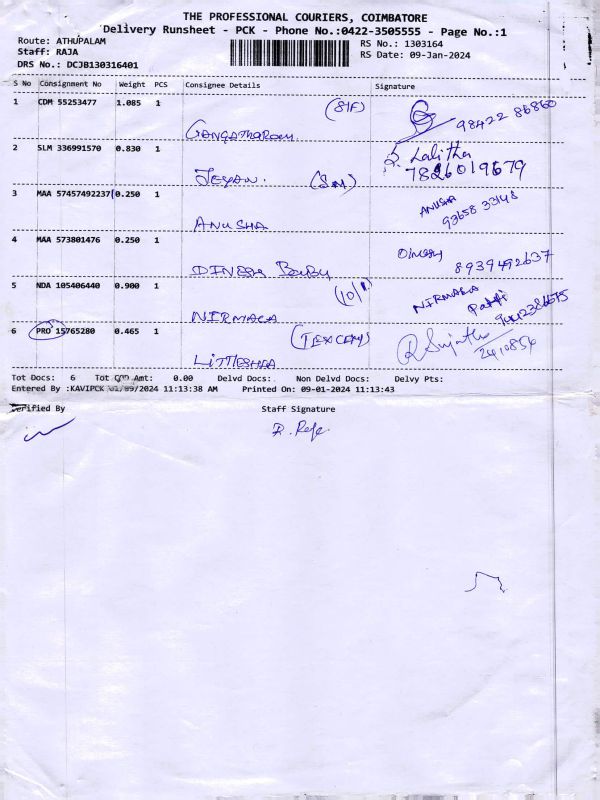 THE PROFESSIONAL COURIERS, COIMBATORE
Delivery Runsheet - PCK - Phone No.:0422-3505555 - Page No.:1
Route: ATHUPALAM
RS No.: 1303164
Staff: RAJA
RS Date: 09-Jan-2024
DRS No.: DCJB130316401
S No Consignment No Weight PCS Consignee Details Signature
1 CDM 55253477 1.085 1 (81F)
GANGATHARAN. 98422 86860
2 SLM 336991570 0.830 1 Lalitha
JEYAN. (SM) 7826019679
3 MAA 57457492237 0.250 1 ANUSHA
ANUSHA 93658 33148
4 MAA 573801476 0.250 1 Dinesh
DINESH BABU 8939492637
5 NDA 105406440 0.900 1 NIRMALA
NIRMALA
6 PRO 15765280 0.465 1 (TEXCAM) Sujatha
LITTLESHAA 2410854
Tot Docs: 6 Tot COD Amt: 0.00 Delvd Docs: Non Delvd Docs: Delvy Pts:
Entered By :KAVIPCK 01/09/2024 11:13:38 AM Printed On: 09-01-2024 11:13:43
Verified By Staff Signature
R. Raja